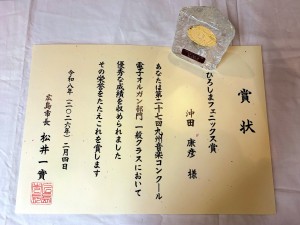 賞状
ひろしまフェニックス賞
沖田 康彦 様
あなたは第二十七回九州音楽コンクール
電子オルガン部門 一般クラスにおいて
優秀な成績を収められました
その栄誉をたたえこれを賞します
令和八年(二〇二六年)二月四日
広島市長 松井 一實